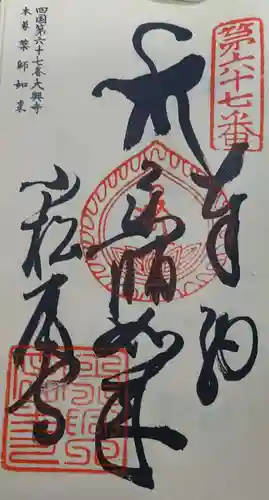 四国第六十七番大興寺
本尊 薬師如来
第六十七番
奉納
薬師如来
小松尾寺